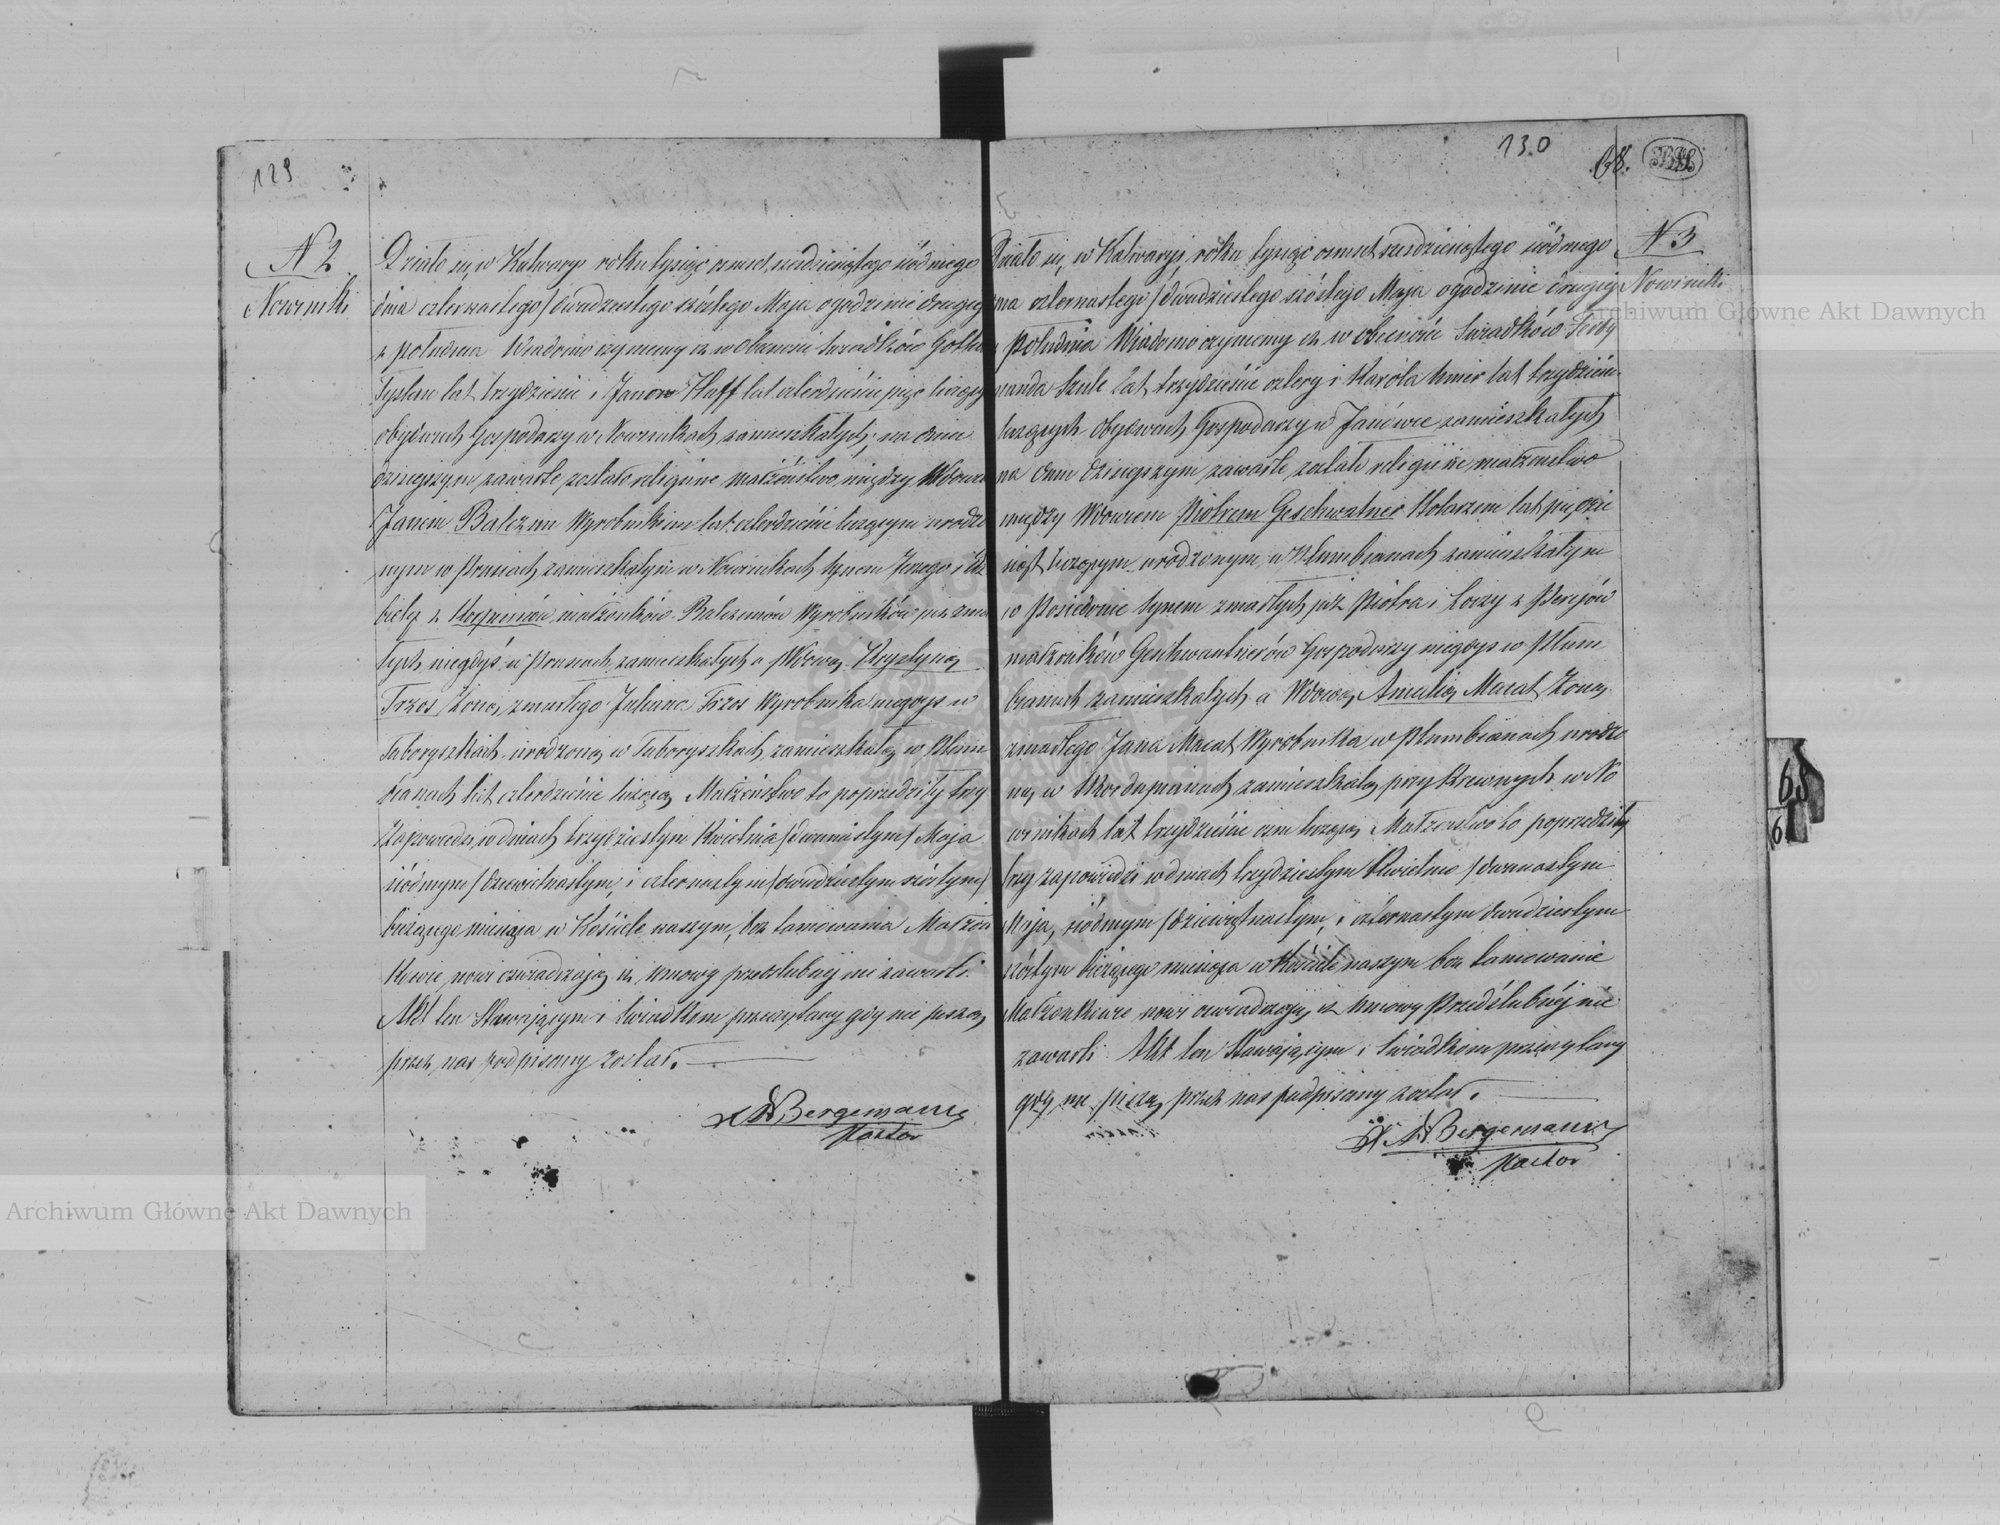 129
N 2
Nowiniki
Działo się w Kalwaryi roku tysiąc osmset szesdziesiątego siódmego
dnia czternastego / dwudziestego szóstego Maja o godzinie drugiej
z południa Wiadomo czynimy iż w obecności Swiadków
lat trzydzieści i Janow Haff lat czterdzieści pięć liczący
obydwuch Gospodarzy w Nowinikach zamieszkałych, na dniu
dzisiejszym zawarte zostało religijne małżeństwo między Wdowcem
Janem Balczun Wyrobnikiem lat czterdzieście liczącym urodzo
nym w Prusiach zamieszkałym w Nowinikach synem Jerzego i Elż
biety z małżonków Balczunów Wyrobników już zmar
łych niegdyś w Prusiach zamieszkałych a Wdową Krystyną
Trzos Żoną zmarłego Juliana Trzos Wyrobnika niegdys w
Taboryszkach urodzoną w Taboryszkach zamieszkałą w Plum
bianach lat czterdzieście liczącą Małżeństwo to poprzedziły trzy
Zapowiedzi w dniach trzydziestym Kwietnia / dwunastym / Maja
siódmym / dziewietnastym i czternastym / dwudziestym szóstym /
bieżącego miesiąca w Kościele naszym, bez tamowania Małżon
kowie nowi oswiadczają iż umowy przedslubnej nie zawarli.
Akt ten Stawającym i Swiadkom przeczytany gdy nie piszą
przez nas podpisany został.
X A Bergemann
Pastor
130
68.
N 3
Nowiniki
Działo się, w Kalwaryi, roku tysiąc osmset szesdziesiątego siódmego
dnia czternastego / dwudziestego szóstego Maja o godzinie drugiej
z Południa Wiadomo czynimy iż w obecności Swiadków Ferdy
nanda Szulc lat trzydzieście cztery i Karola lat trzydzieści
liczących obydwuch Gospodarzy w Janówce zamieszkałych
na dniu dzisiejszym zawarte zostało religijne małżenstwo
między Wdowcem Piotrem Geschwatner Kolarzem lat pięćdzie
siąt liczącym urodzonym w Plumbianach zamieszkałym
w synem zmarłych już Piotra i z
małżonków Geschwantnerów Gospodarzy niegdys w Plum
bianach zamieszkałych a Wdową Amalią Macat Żoną
zmarłego Jana Macat Wyrobnika w Plumbianach urodzo
ną w zamieszkałą przy Krewnych w No
winikach lat trzydzieście osm liczącą Małżenstwo to poprzedziły
trzy zapowiedzi w dniach trzydziestym Kwietnia / dwunastym
Maja, siódmym / dziewiętnastym, i czternastym dwudziestym
szóstym bieżącego miesiąca w Kościele naszym bez tamowania
Małżonkowie nowi oswiadczają iż umowy Przedślubnéj nie
zawarli. Akt ten Stawającym i Swiadkom przeczytany
gdy nie piszą, przez nas podpisany został.
X A Bergemann
Pastor
68
6
Archiwum Główne Akt Dawnych
Archiwum Główne Akt Dawnych